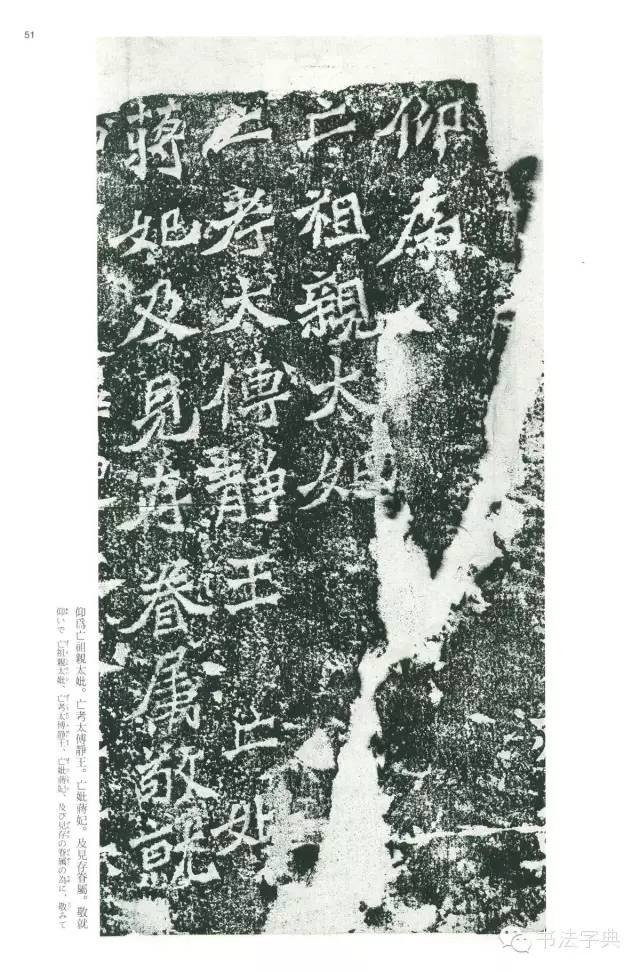 51
仰為
亡祖親大妣
亡考太傅靜王 亡妣
蔣妃及見存眷属敬就
仰爲亡祖親太妣。亡考太傅靜王。亡妣蔣妃。及見存眷屬。敬就
仰いで 亡祖親太妣、亡考太傅靜王、亡妣蔣妃、及び見存の眷屬の為に、敬みて
书法字典